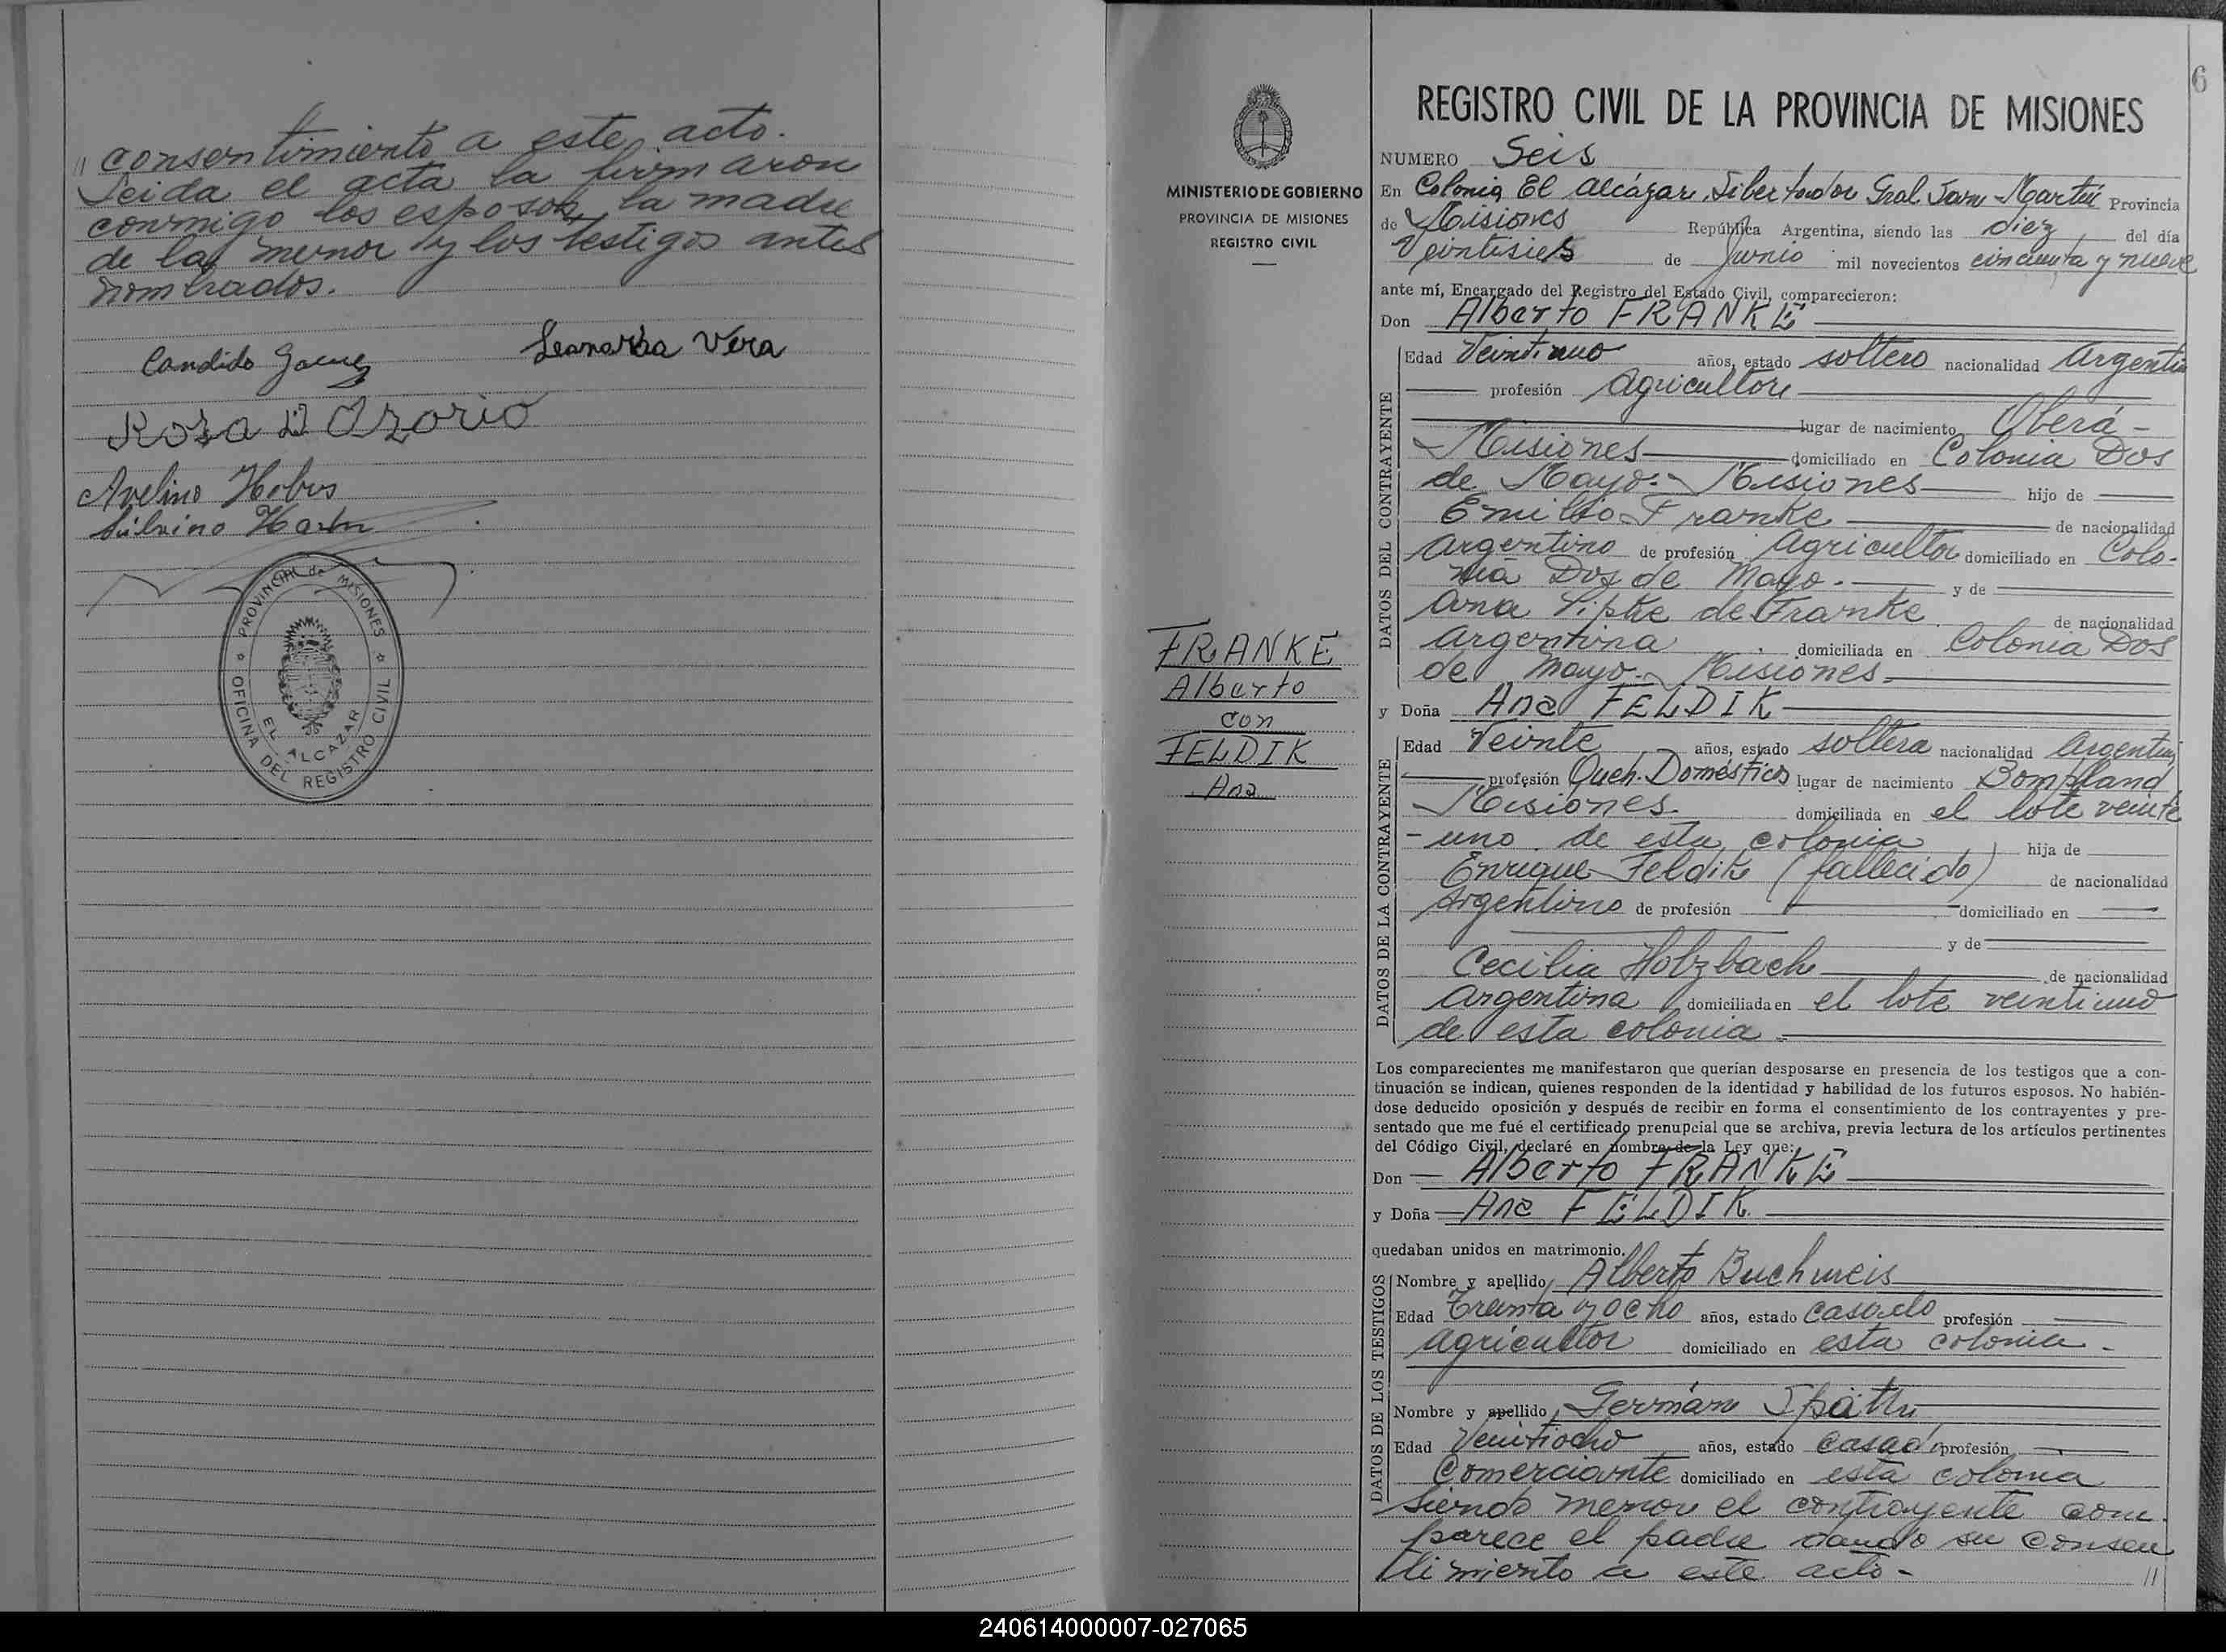 // consentimiento a este acto.
Leida el acta la firmaron
conmigo los esposos, la madre
de la menor y los testigos antes
nombrados.
Candido Leonarda Vera
Rosa D Ozorio
Avelino
Silvino
PROVINCIAL de MISIONES
OFICINA DEL REGISTRO CIVIL
EL ALCAZAR
6
MINISTERIO DE GOBIERNO
PROVINCIA DE MISIONES
REGISTRO CIVIL
FRANKE
Alberto
con
FELDIK
Ana
REGISTRO CIVIL DE LA PROVINCIA DE MISIONES
NUMERO Seis
En Colonia El Alcázar, Libertador Gral San Martín Provincia
de Misiones República Argentina, siendo las diez del día
Veintiseis de Junio mil novecientos cincuenta y nueve
ante mí, Encargado del Registro del Estado Civil, comparecieron:
Don Alberto FRANKE
DATOS DEL CONTRAYENTE
Edad Veintiuno años, estado soltero nacionalidad Argentin
profesión Agricultor
lugar de nacimiento Oberá -
Misiones domiciliado en Colonia Dos
de Mayo. - Misiones hijo de
Emilio Franke de nacionalidad
Argentino de profesión Agricultor domiciliado en Colo-
nia Dos de Mayo. y de
Ana Lipke de Franke de nacionalidad
Argentina domiciliada en Colonia Dos
de Mayo - Misiones
y Doña Ana FELDIK
DATOS DE LA CONTRAYENTE
Edad Veinte años, estado soltera nacionalidad Argentin
profesión Queh. Domésticos lugar de nacimiento Bompland
Misiones. domiciliada en el lote veinti
- uno de esta colonia hija de
Enrique Feldik (fallecido) de nacionalidad
Argentino de profesión domiciliado en
y de
Cecilia Holzbach de nacionalidad
Argentina domiciliada en el lote veintiuno
de esta colonia
Los comparecientes me manifestaron que querían desposarse en presencia de los testigos que a con-
tinuación se indican, quienes responden de la identidad y habilidad de los futuros esposos. No habién-
dose deducido oposición y después de recibir en forma el consentimiento de los contrayentes y pre-
sentado que me fué el certificado prenupcial que se archiva, previa lectura de los artículos pertinentes
del Código Civil, declaré en nombre de la Ley que:
Don Alberto FRANKE
y Doña Ana FELDIK
quedaban unidos en matrimonio.
DATOS DE LOS TESTIGOS
Nombre y apellido Alberto Buchweis
Edad Treinta y ocho años, estado casado profesión
agricultor domiciliado en esta colonia -
Nombre y apellido Germán Späth
Edad Veintiocho años, estado casado profesión
Comerciante domiciliado en esta colonia
Siendo menor el contrayente com
parece el padre dando su consen
timiento a este acto - //
240614000007-027065